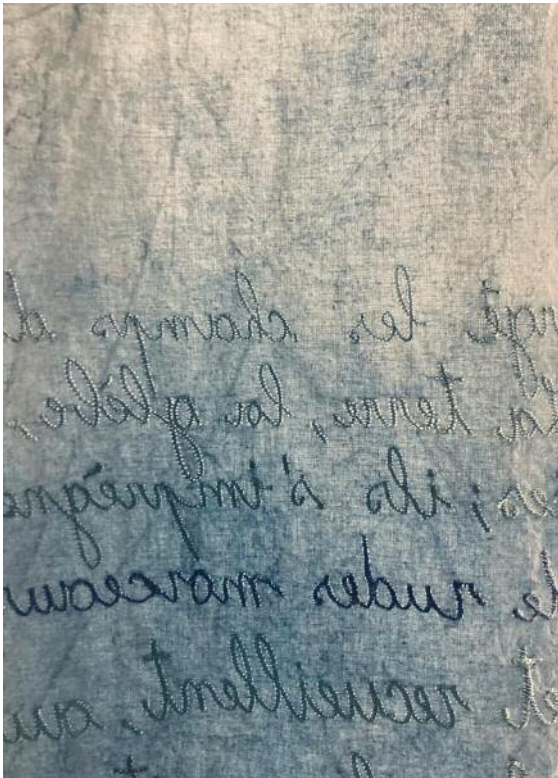 les champs
la terre, la glèbe,
ils s'imprègne
de rudes morceaux
et recueillent, au